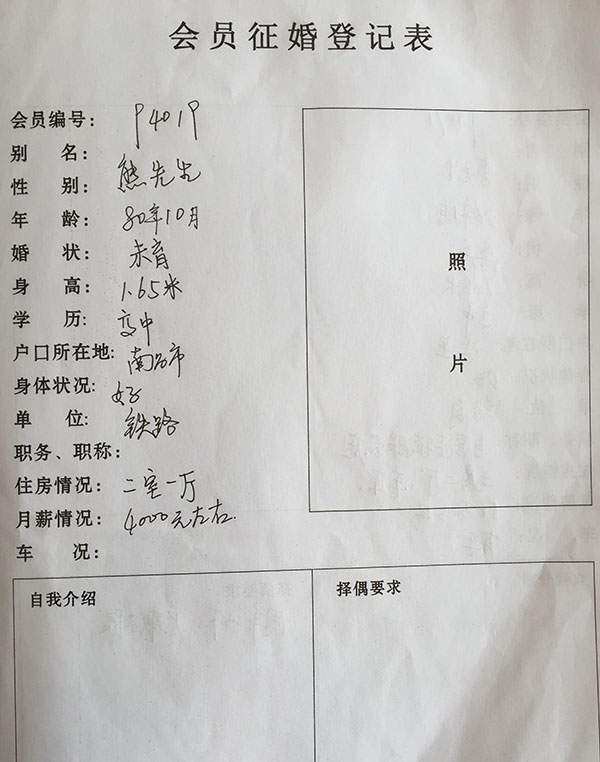 会员征婚登记表
会员编号： P4019
别 名：
性 别： 熊先生
年 龄： 80年10月
婚 状： 未育
身 高： 1.65米
学 历: 高中
户口所在地: 南昌市
身体状况: 好
单 位: 铁路
职务、职称:
住房情况: 二室一厅
月薪情况: 4000元左右.
车 况:
照
片
自我介绍
择偶要求